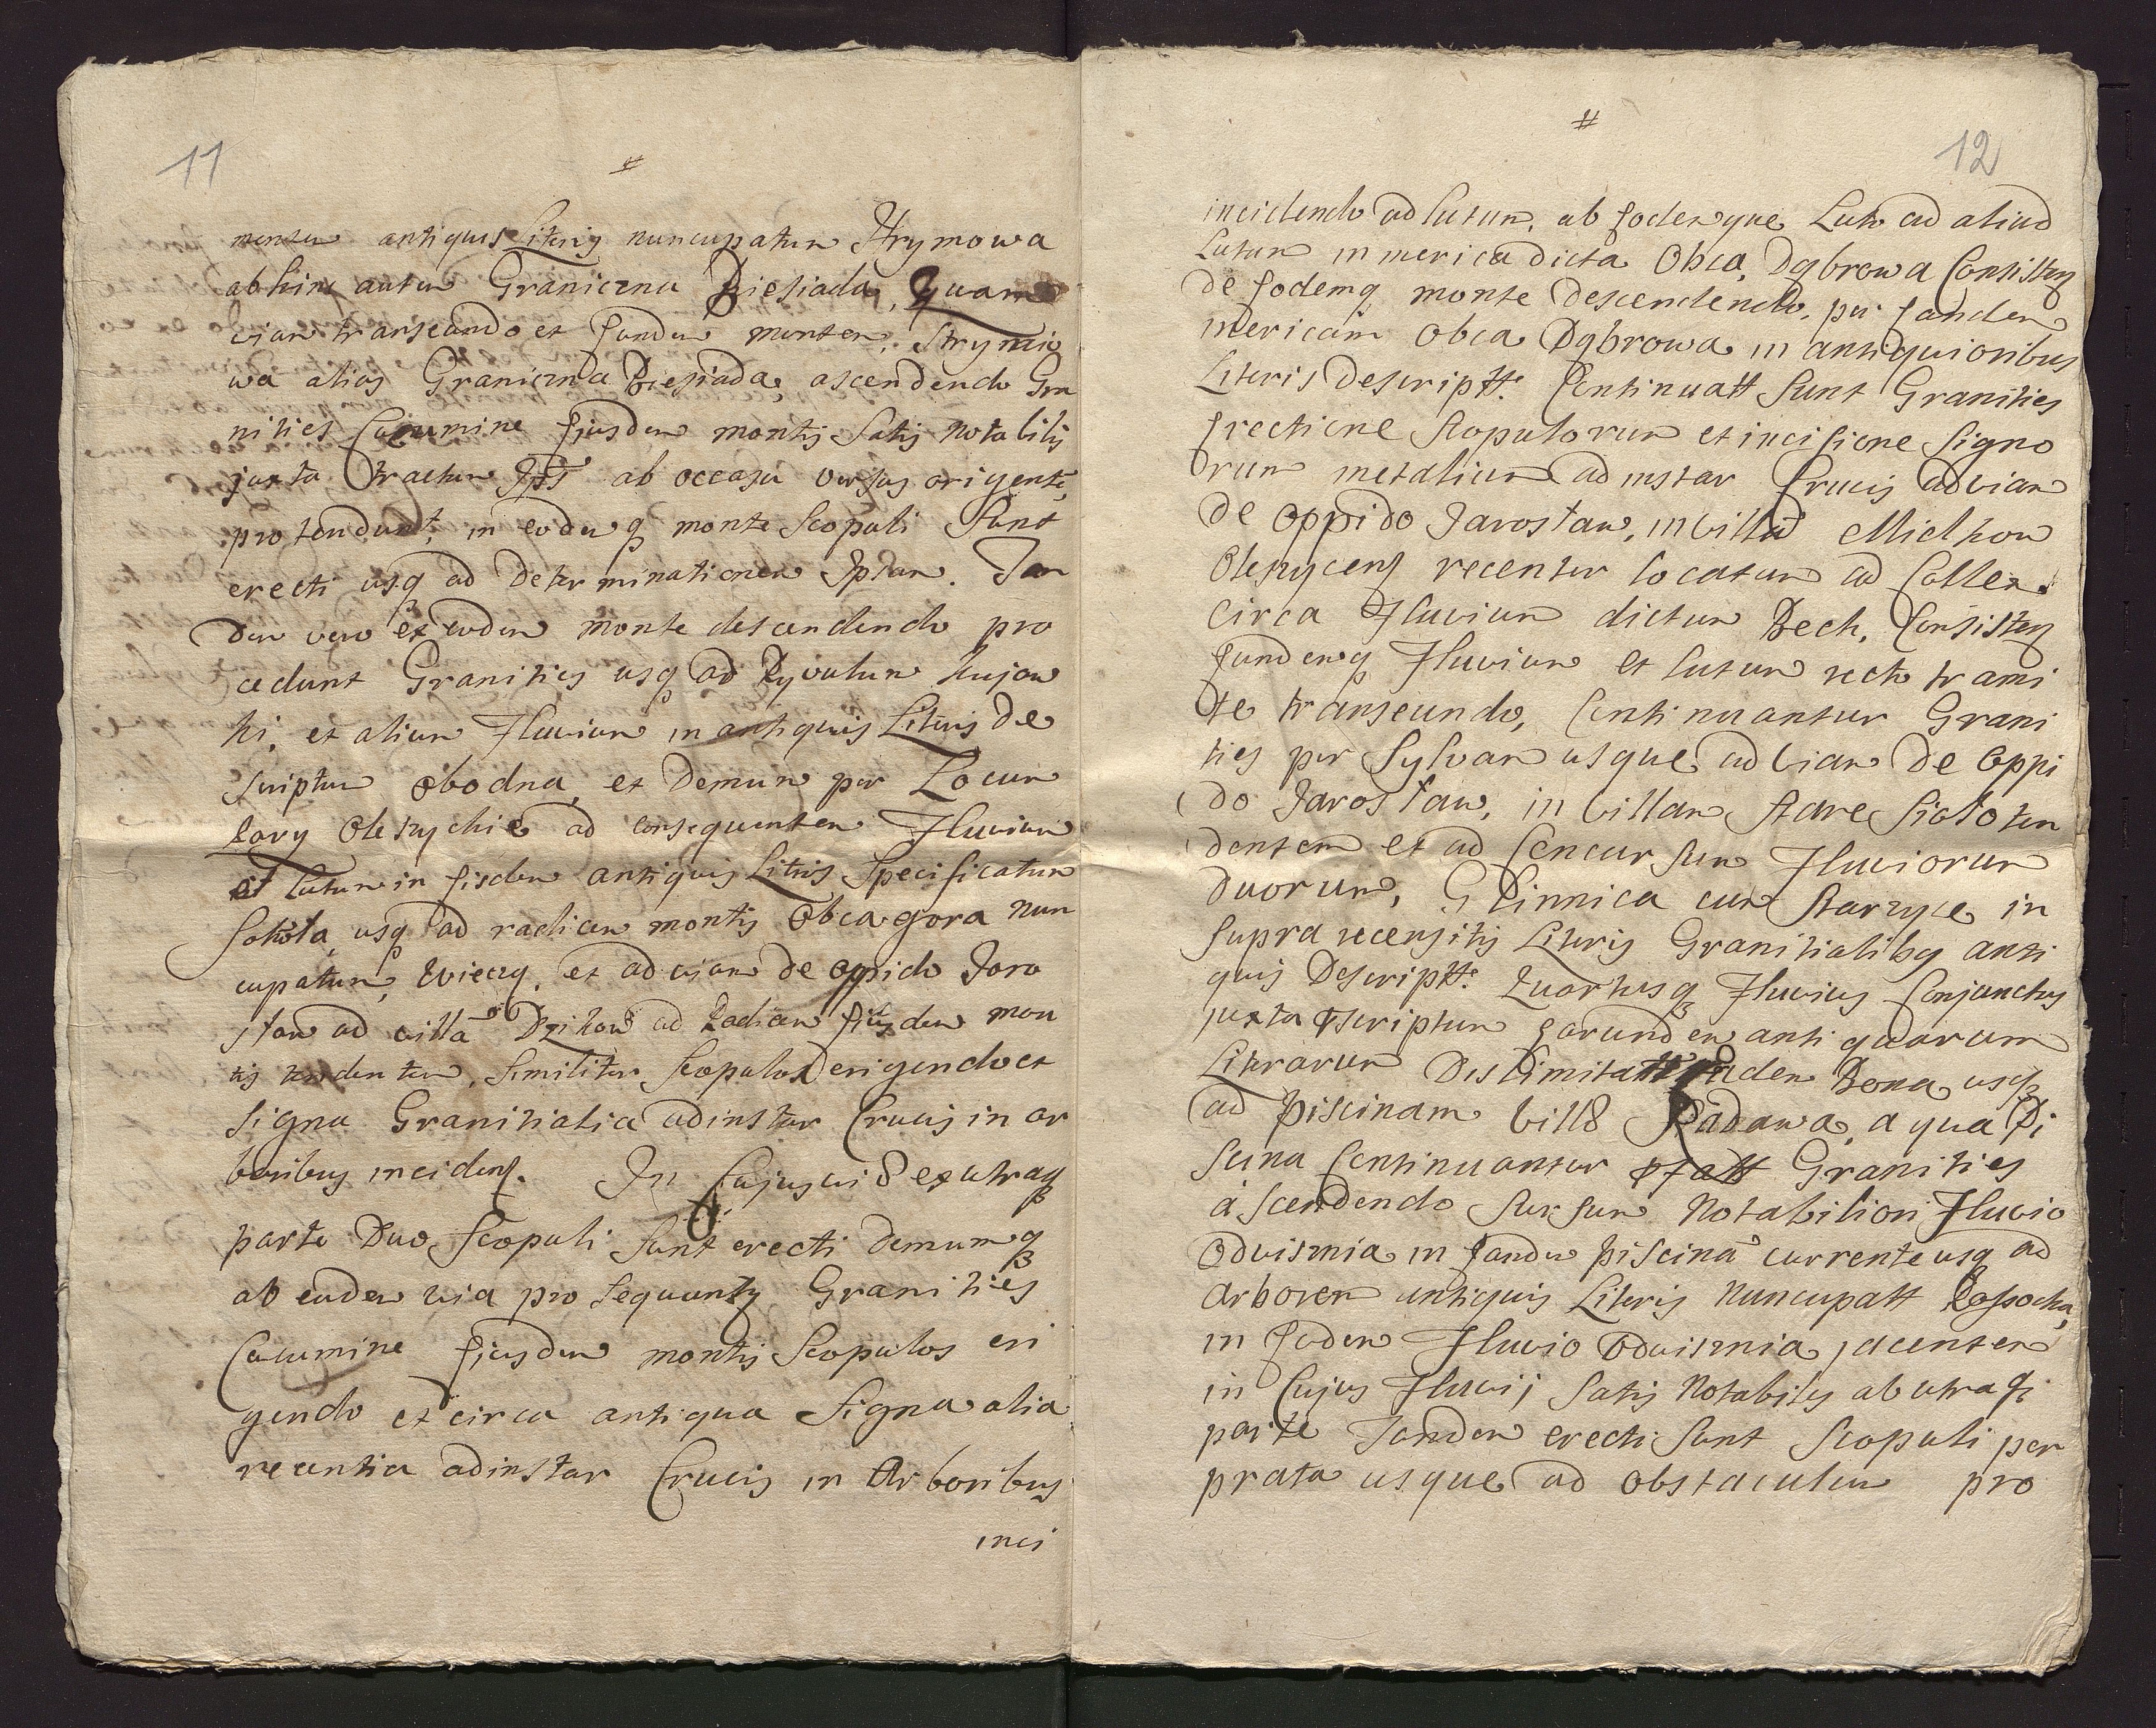 11
#
montem antiquis Literis nuncupatum Strymowa
ab hinc autem Graniczna Biesiada, Quam
viam transeundo et Eundem montem, Strymo
wa alias Graniczna Biesiada, ascendendo Gra
nities Cacumine Ejusdem montis Satis notabilis
juxta tractum Ipsius ab occasu versus orientē,
protendunt, in eodemq monte Scopuli Sunt
erecti usq ad Determinationem Ipsam. Tan
dem vero ex eodem monte descendendo pro
cedunt Granities usq ad Ryvulum Kujow
ki, et alium Fluvium in antiquis Literis De
scriptum Obodna, et Demum per Locum
Lazy Oleszyckie ad consequentem Fluvium
et lutum in Eisdem antiquis Litris Specificatum
Sokola, usq ad radicem montis Obca gora nun
cupatum, Wierzy, et ad viam de Oppido Jaro
slaw ad villā Dzikow ad Radicem Ejusdem mon
tis tendentem, Similiter Scopulos erigendo et
signa Granitialia adinstar Crucis in ar
boribus inciden. In Cujus viæ ex utraq
parte Duo Scopuli Sunt erecti demumq
ab eadem via prosequuntur Granities
Cacumine Ejusdem montis Scopulos eri
gendo et circa antiqua Signa alia
recentia adinstar Crucis in Arboribus
inci
12
#
incidendo ad lutum, ab Eodemque Luto ad aliud
Lutum in merica dicta Obca, Dąbrowa Consisten
De Eodemq monte Descendendo, per Eandem
mericam Obca Dąbrowa in antiquioribus
Literis Descriptt. Continuatt Sunt Granities
Erectione Scopulorum et incisione Signo
rum metalium ad instar Crucis ad viam
De Oppido Jarosław, in villā Mielkow
Oleszycens recenter locatam ad Collem
circa Fluvium dictum Bech, Consisten
Eundemq Fluvium et lutum recto trami
te transeundo, Continuantur Grani
ties per Sylvam usque ad viam De Oppi
do Jarosław, in villam Stare Sioło ten
dentem et ad Concursum Fluviorum
duorum, Glinnica cum Starzyce in
supra recensitis Literis Granitialibq anti
quis Descriptt. Quorusq Fluvius Conjunctus
juxta Pscriptum Earundem antiquarum
Literarum Dislimitatt Eadem Bona usq
ad Piscinam villæ Radawa, a qua Pi
scina Continuantur pfatt Granities
áscendendo Sursum Notabiliori Fluvio
Odvisznia in Eandem Piscinā currente usq ad
Arborem antiquis Literis Nuncupatt Rossocha,
in Eodem Fluvio Odvisznia, jacentem
in Cujus Fluvij Satis Notabilis ab utraq
parte Tandem erecti Sunt Scopuli per
prata usque ad obstaculum pro